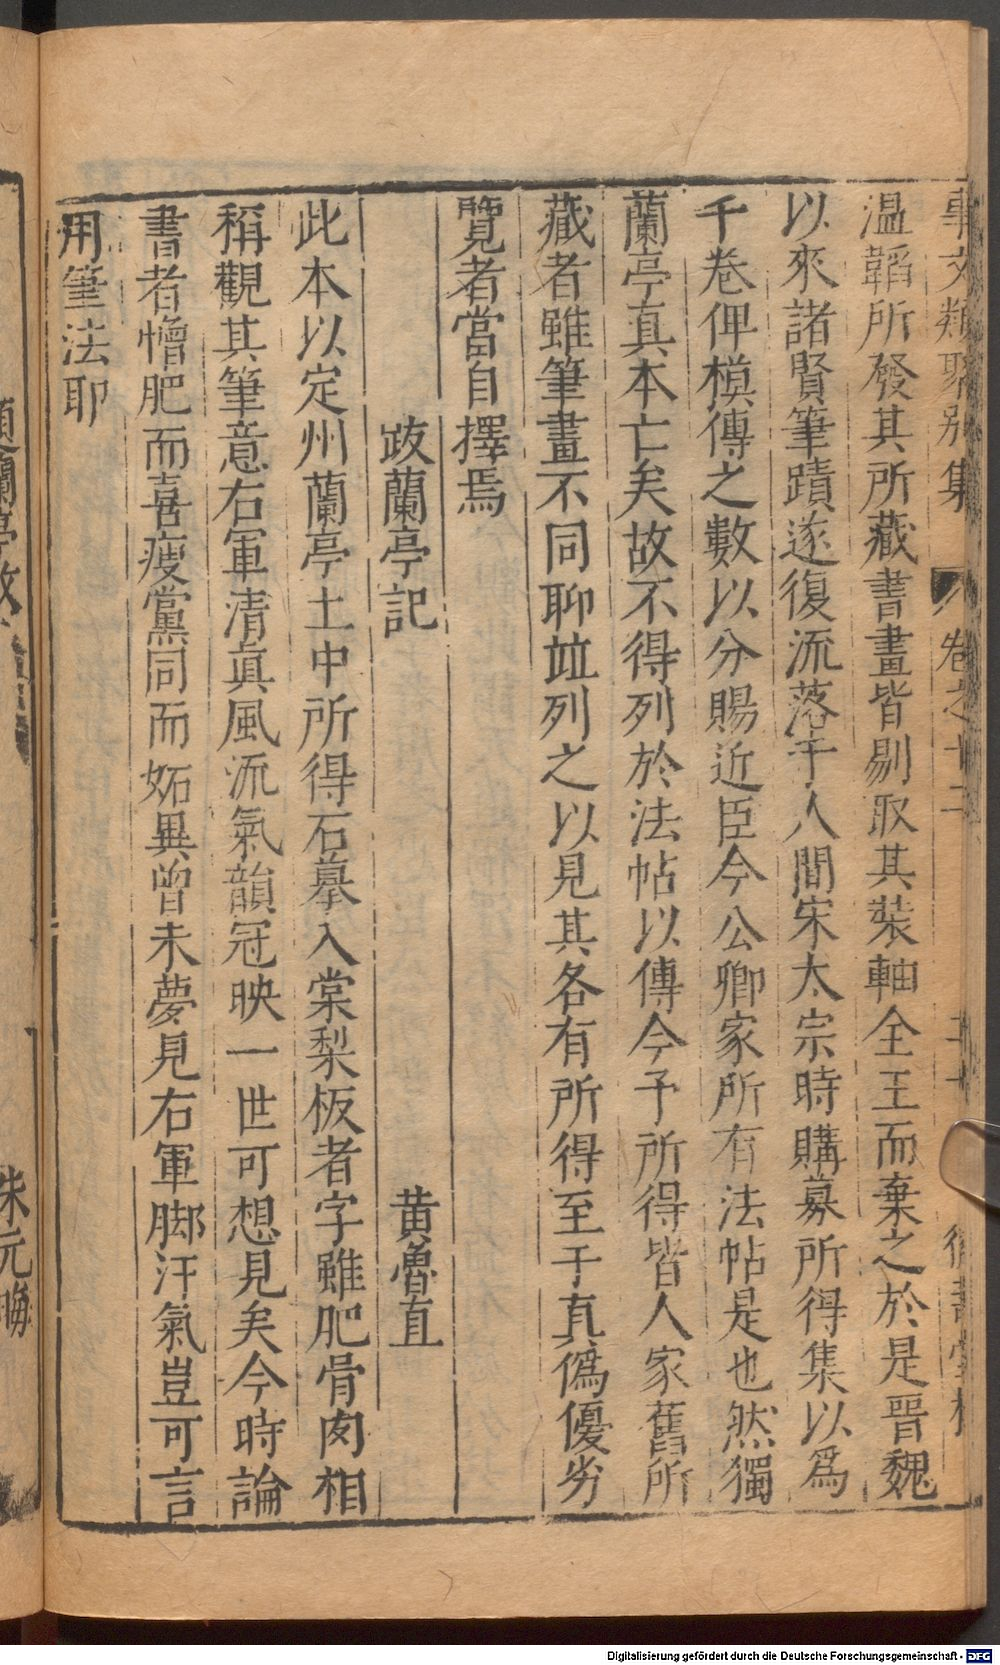 事文類聚別集 卷之十二 二十
温韜所發其所藏書畫皆剔取其裝軸金玉而棄之於是晋魏
以來諸賢筆蹟遂復流落于人間宋太宗時購募所得集以爲
千卷俾模傳之數以分賜近臣今公卿家所有法帖是也然獨
蘭亭真本亡矣故不得列於法帖以傳今予所得皆人家舊所
藏者雖筆畫不同聊並列之以見其各有所得至于真僞優劣
覽者當自擇焉
跋蘭亭記 黄魯直
此本以定州蘭亭土中所得石摹入棠梨板者字雖肥骨肉相
稱觀其筆意右軍清真風流氣韻冠映一世可想見矣今時論
書者憎肥而喜瘦黨同而妬異曾未夢見右軍脚汗氣豈可言
用筆法耶
題蘭亭敘 朱元晦
Digitalisierung gefördert durch die Deutsche Forschungsgemeinschaft - DFG